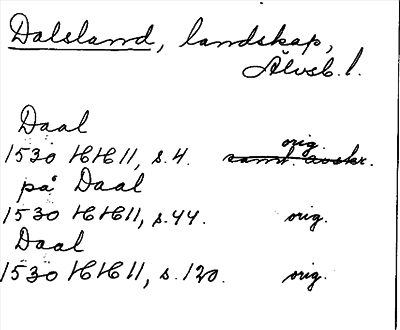 Dalsland, landskap,
Älvsb. l.
Daal
orig.
1530 HH 11, s. 4. samt. avskr.
på Daal
1530 HH 11, s. 44. orig.
Daal
1530 HH 11, s. 120. orig.